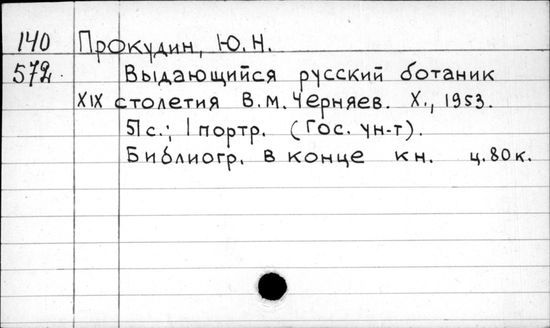 140 Прокудин, Ю.Н.
572. Выдающийся русский ботаник
XIX столетия В.М. Черняев. Х., 1953.
51с.; 1 портр. (Гос. ун-т).
Библиогр. в конце кн. ц. 80 к.